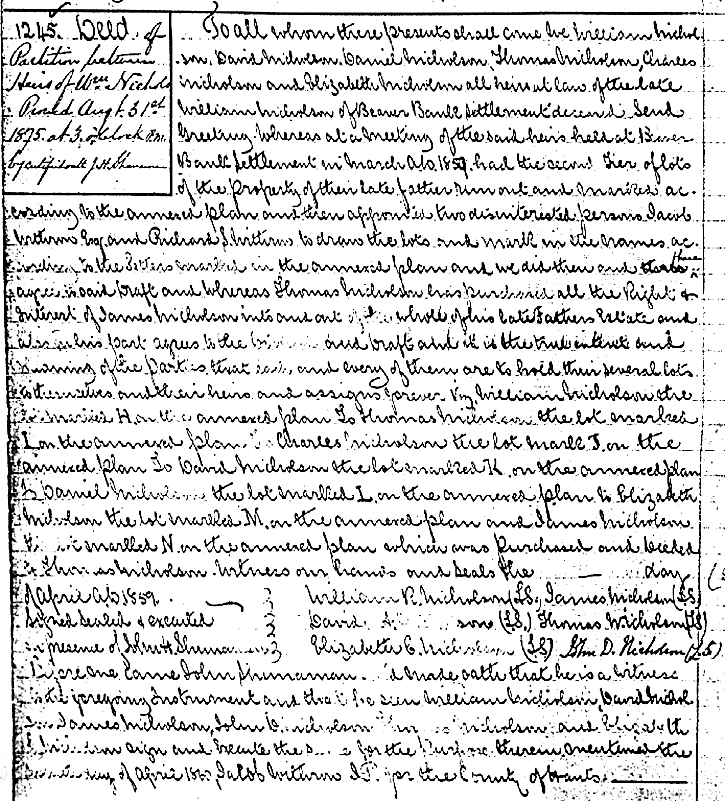 1245. Deed of
Partition between
Heirs of Wm Nichols
Proved Augt. 31st
1875. at 3. o'clock P.M.
by affidavit J. H. Shunaman
To all whom these presents shall come We William Nichol
son, David Nicholson, Daniel Nicholson, Thomas Nicholson, Charles
Nicholson and Elizabeth Nicholson all heirs at law of the late
William Nicholson of Beaver Bank Settlement deceased Send
Greeting. Whereas at a meeting of the said heirs held at Beaver
Bank Settlement in March A.D. 1859. had the second Tier of lots
of the property of their late father run out and marked ac-
cording to the annexed plan and then appointed two disinterested persons Jacob
Withrow Esq and Richard J. Withrow to draw the lots and mark in the names ac-
cording to the letters marked in the annexed plan and we did then and there
agree to said draft and whereas Thomas Nicholson has purchased all the Right &
Interest of James Nicholson into and out of the whole of his late Fathers Estate and
also his part agrees to the and draft and it is the true intent and
meaning of the Parties that each and every of them are to hold their several lots
to themselves and their heirs and assigns forever Viz William Nicholson the
lot marked H. on the annexed plan To Thomas Nicholson the lot marked
I. on the annexed plan. To Charles Nicholson the lot mark J. on the
annexed plan To David Nicholson the lot marked K. on the annexed plan
To Daniel Nicholson the lot marked L. on the annexed plan to Elizabeth
Nicholson the lot marked M. on the annexed plan and James Nicholson
lot marked N. on the annexed plan which was purchased and deeded
to Thomas Nicholson Witness our hands and seals the — day
of April A.D. 1859.
William R. Nicholson (LS), James Nicholson (LS)
Signed Sealed & executed
David son (LS) Thomas Nicholson (LS)
in presence of John H. Shunaman
Elizabeth C. Nicholson (LS) John D. Nicholson (LS)
Before me Came John Shunaman. and made oath that he is a witness
to the foregoing Instrument and that he seen William Nicholson, David Nichol
son James Nicholson, John D. Nicholson Thomas Nicholson, and Elizabeth
Nicholson sign and execute the same for the Purpose therein mentioned the
day of April Jacob Withrow J.P. for the County of Hants.